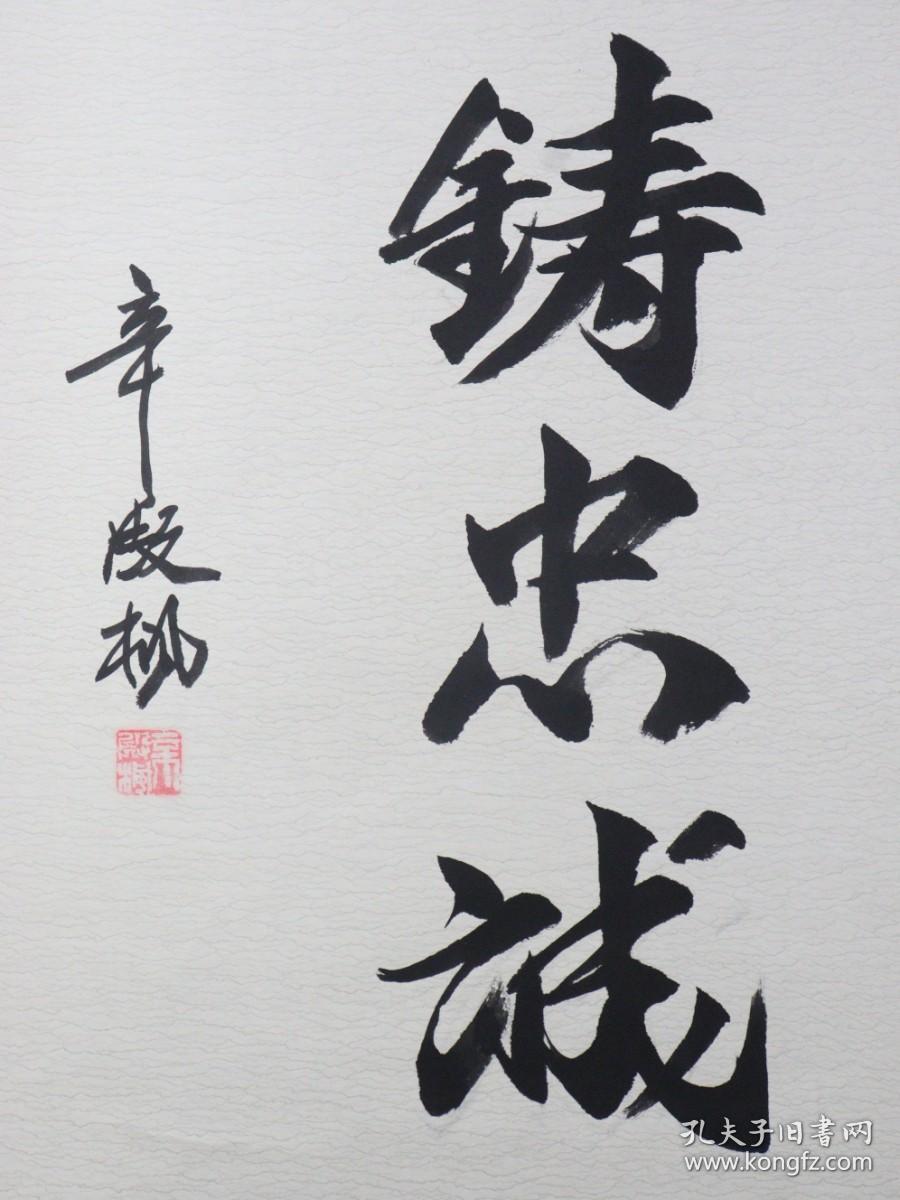 铸忠诚
辛殿枫
孔夫子旧書网
www.kongfz.com